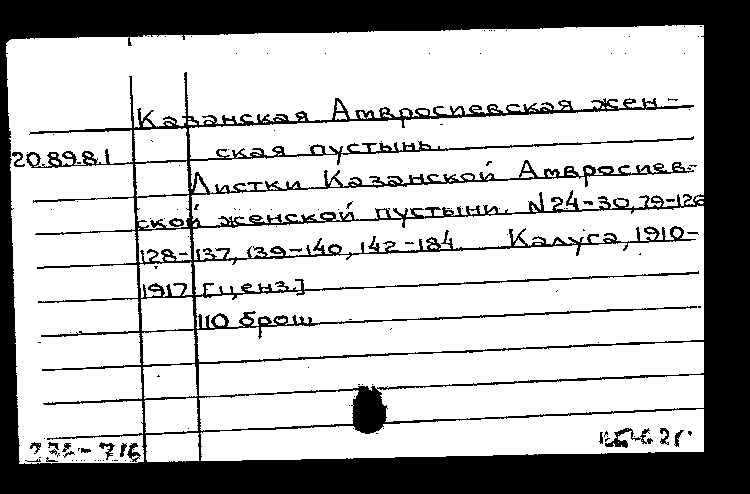 Казанская Амвросиевская жен-
20.89.8.1 ская пустынь.
Листки Казанской Амвросиев-
ской женской пустыни. N 24-30, 79-126
128-137, 139-140, 142-184. Калуга, 1910-
1917 [ценз.]
110 брош